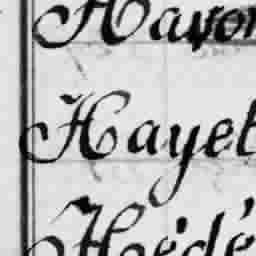 Havon
Hayet
Hédé